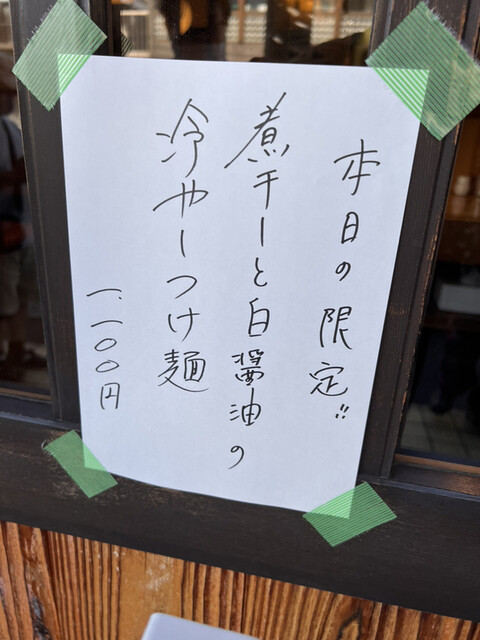 本日の限定!!
煮干しと白醤油の
冷やしつけ麺
一、一〇〇円